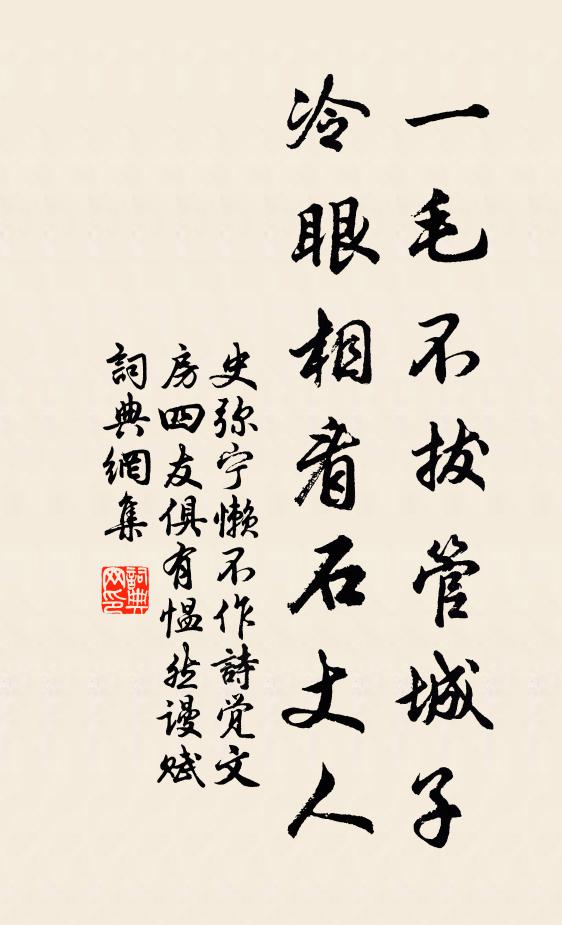 一毛不拔管城子
冷眼相看石丈人
史弥宁懒不作詩觉文
房四友俱有愠然谩赋
詞典網集
詞典
网印